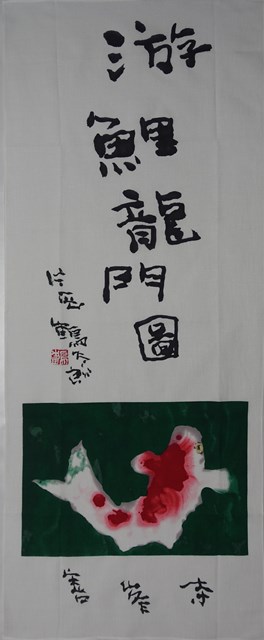 游鯉龍門圖
片岡鶴太郎